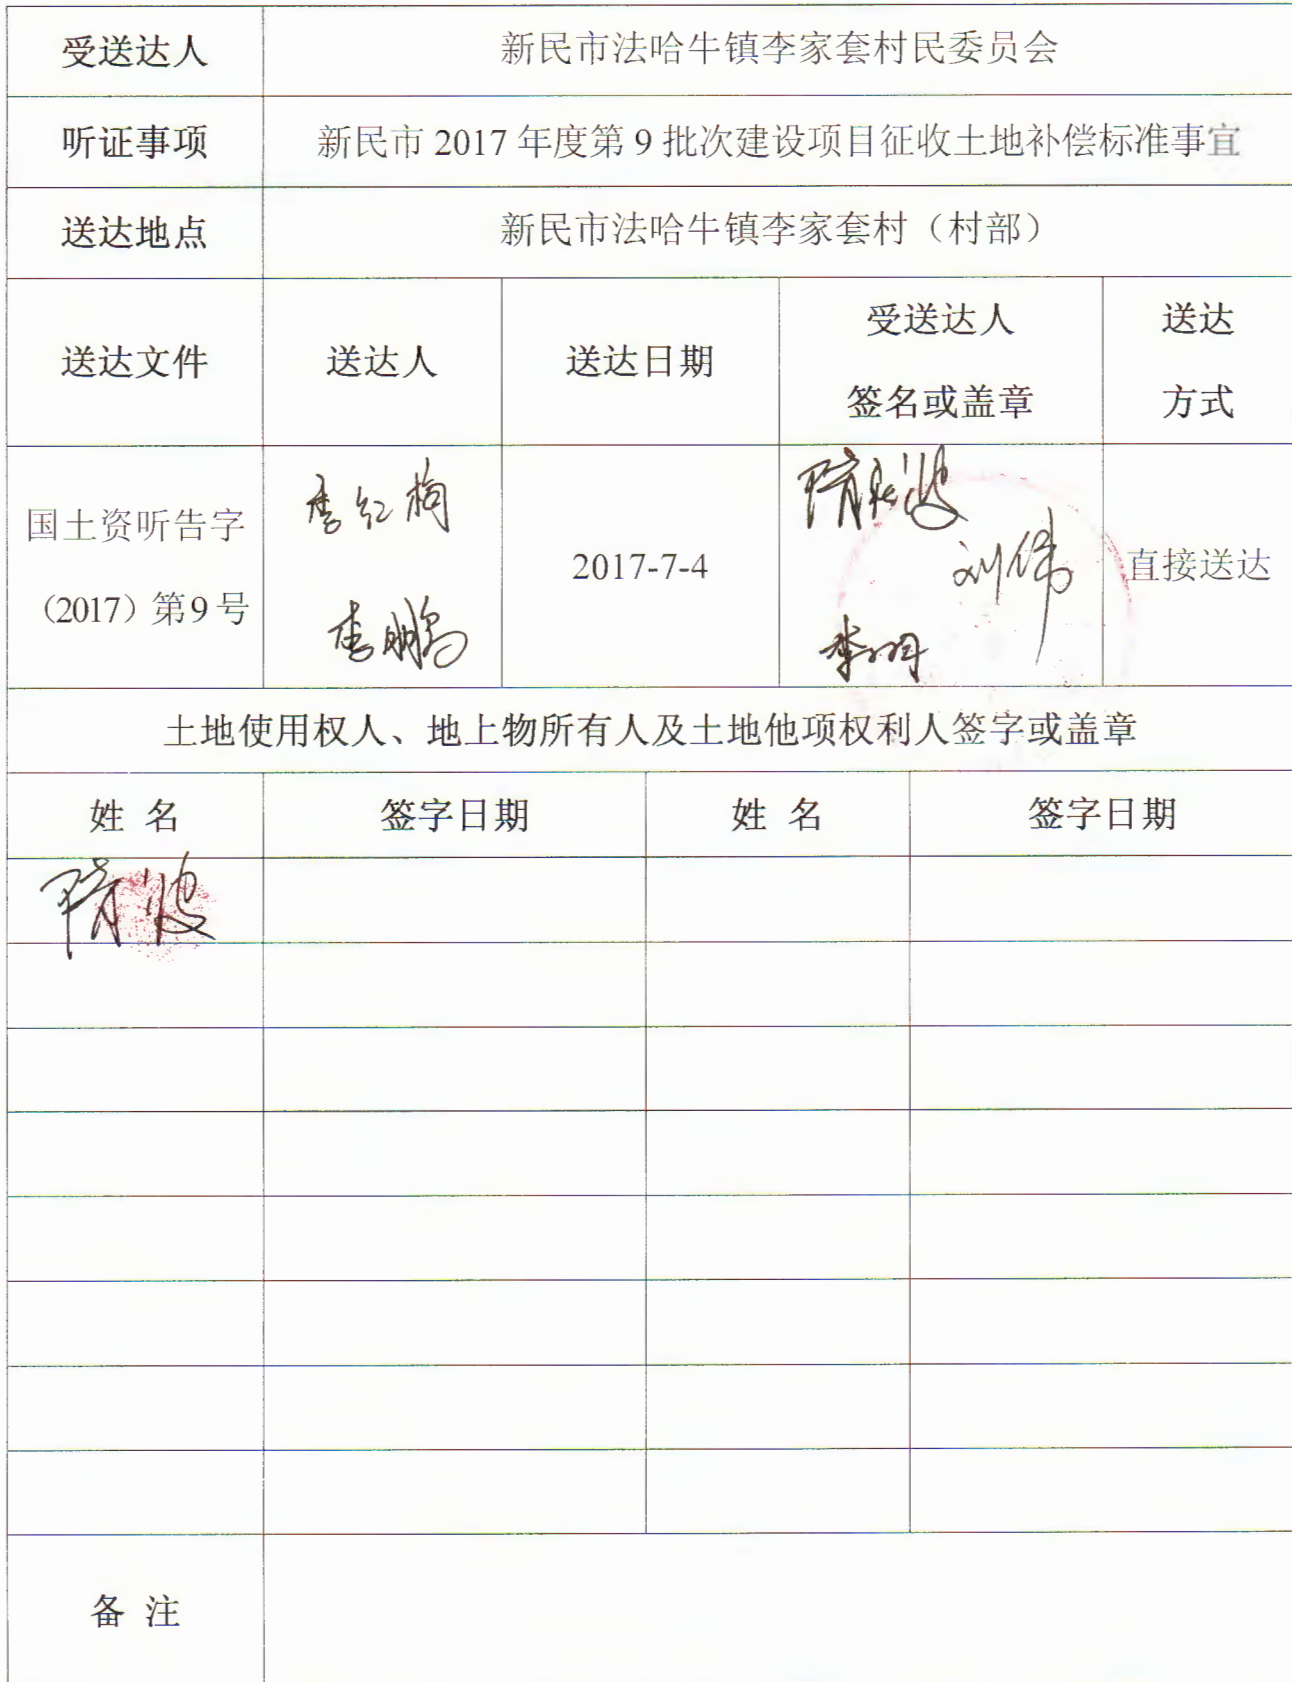 受送达人 新民市法哈牛镇李家套村民委员会
听证事项 新民市 2017 年度第 9 批次建设项目征收土地补偿标准事宜
送达地点 新民市法哈牛镇李家套村（村部）
送达文件 送达人 送达日期 受送达人 签名或盖章 送达 方式
国土资听告字
（2017）第9号
李红梅
李鹏
2017-7-4
刘伟
直接送达
土地使用权人、地上物所有人及土地他项权利人签字或盖章
姓 名 签字日期 姓 名 签字日期
备 注